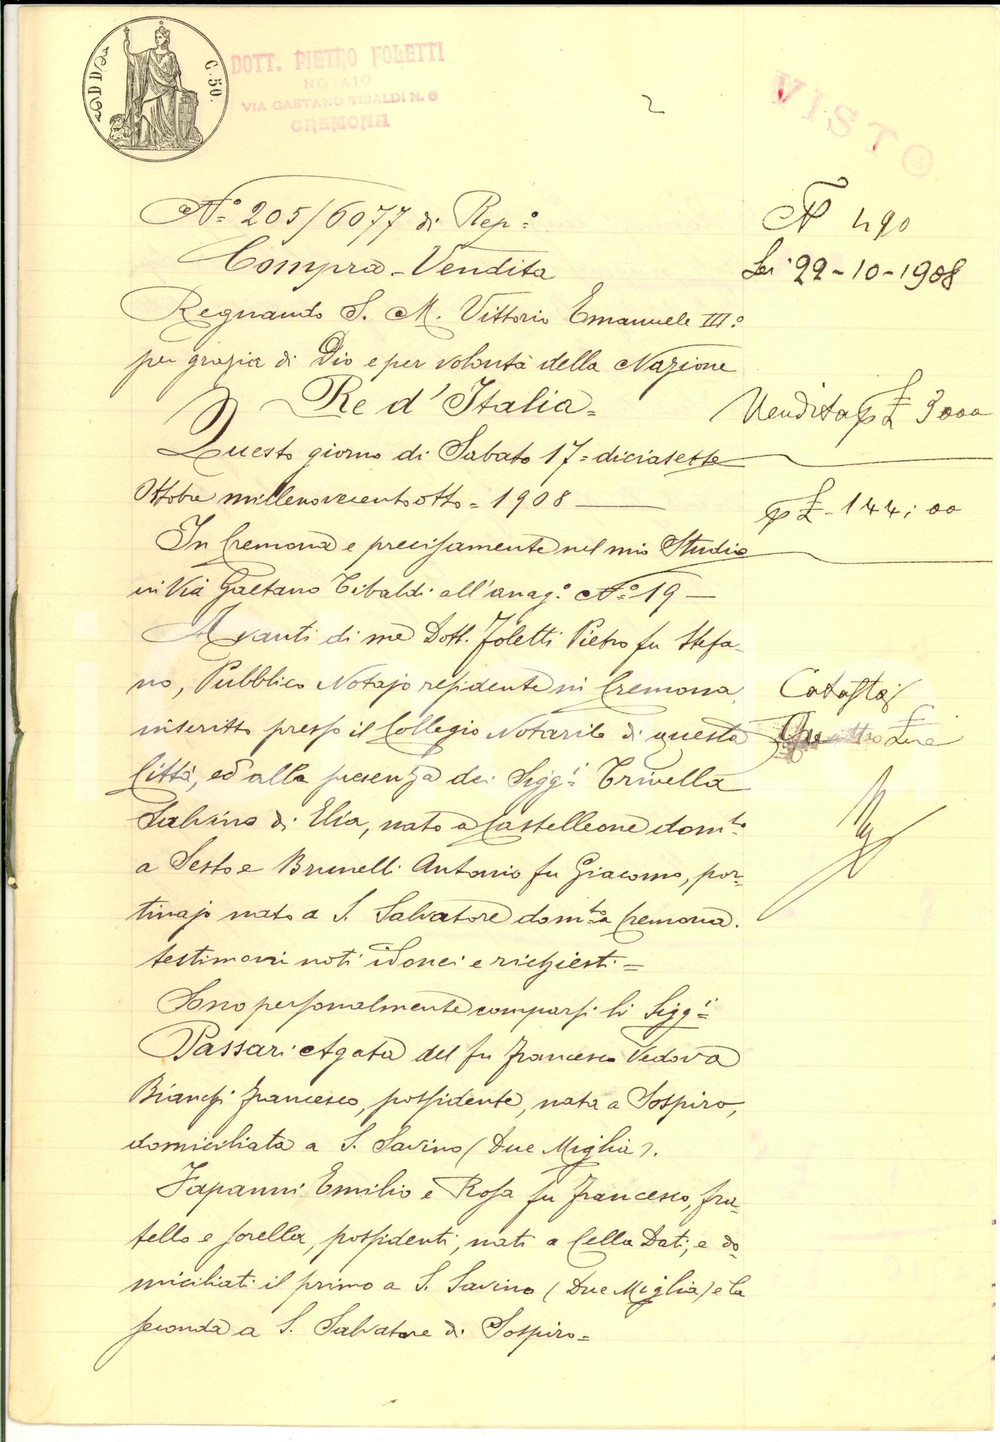 C. 50.
DOTT. PIETRO FOLETTI
NO AIO
VIA GAETANO TIBALDI N. 6
CREMONA
2
VISTO
N.º 205/6077 di Rep.º
Compra-Vendita
Regnando S. M. Vittorio Emanuele III.º
per grazia di Dio e per volontà della Nazione
Re d'Italia =
Questo giorno di Sabato 17 = diciasette
Ottobre millenovecentootto = 1908
In Cremona e precisamente nel mio Studio
in Via Gaetano Tibaldi all'anag.º N.º 19 —
Avanti di me Dott. Foletti Pietro fu Stefa-
no, Pubblico Notajo residente in Cremona,
inscritto presso il Collegio Notarile di questa
Città, ed alla presenza dei Sigg.i Trivella
Salvino di Elia, nato a Castelleone dom.to
a Sesto e Brunelli Antonio fu Giacomo, por-
tinajo nato a S. Salvatore dom.to a Cremona.
testimoni noti idonei e richiesti =
Sono personalmente comparsi li Sigg.ri
Passari Agata del fu Francesco Vedova
Bianchi Francesco, possidente, nata a Sospiro,
domiciliata a S. Savino (Due Miglia).
Fapanni Emilio e Rosa fu Francesco, fra-
tello e sorella, possidenti, nati a Cella Dati, e do-
miciliati il primo a S. Savino (Due Miglia) e la
seconda a S. Salvatore di Sospiro =
N 490
22-10-1908
Vendita p £ 3000
p £ 144,00
Catastai
Lire